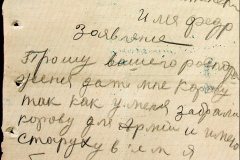 Имя федр
Заявление
Прошу вашего распоря
жения дать мне корову
так как у меня забрали
корову для Армии и имею
старуху в